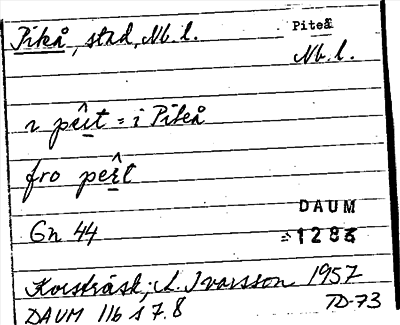 Piteå, stad, Nb. l.
Piteå
Nb. l.
i pêi̱t = i Piteå
fro pêi̱t
Gn 44
DAUM
1286
Korsträsk; L. Ivarsson 1957
DAUM 116 s 7. 8
TD-73